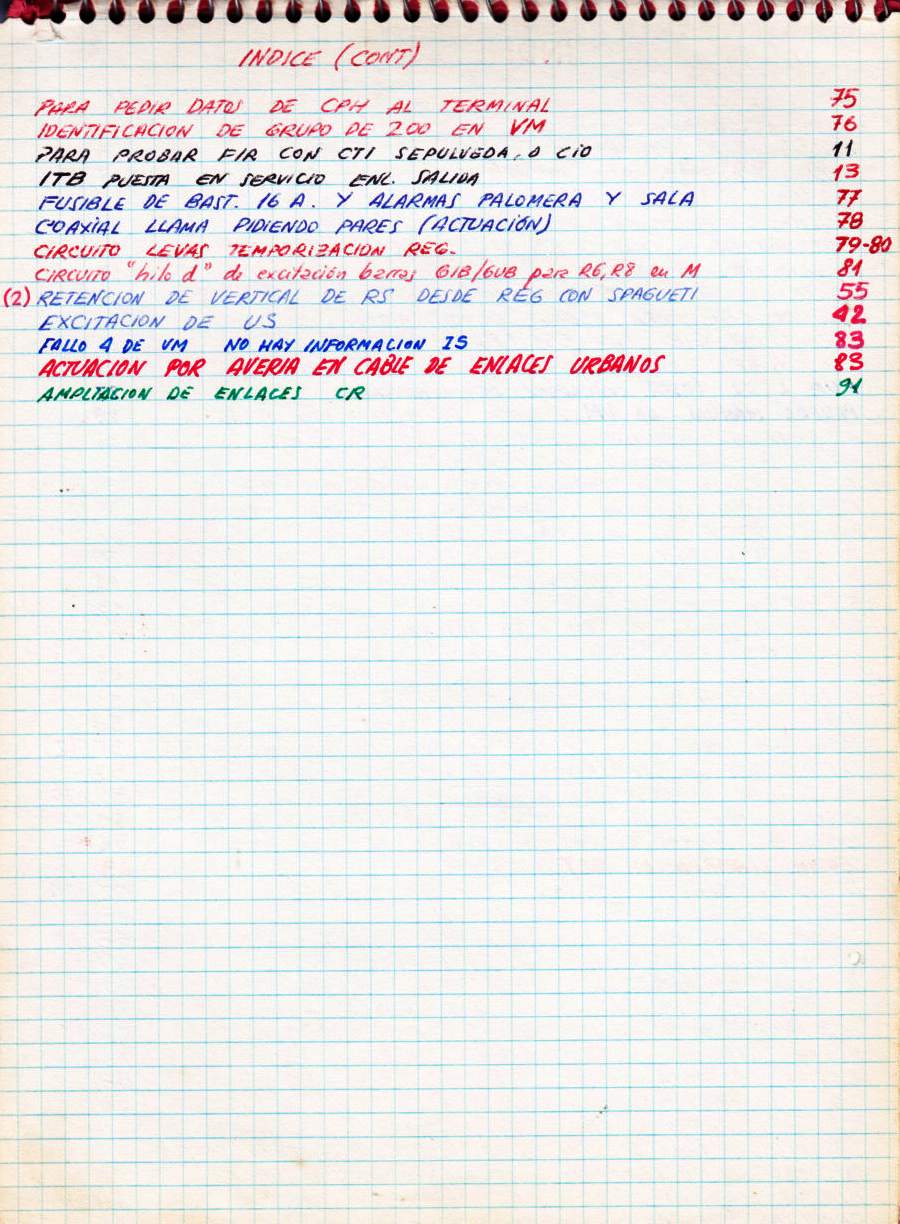 INDICE (CONT)
PARA PEDIR DATOS DE CPH AL TERMINAL 75
IDENTIFICACION DE GRUPO DE 200 EN VM 76
PARA PROBAR FIR CON CTI SEPULVEDA, O CIO 11
ITB PUESTA EN SERVICIO ENL. SALIDA 13
FUSIBLE DE BAST. 16 A. Y ALARMAS PALOMERA Y SALA 77
COAXIAL LLAMA PIDIENDO PARES (ACTUACIÓN) 78
CIRCUITO LEVAS TEMPORIZACION REG. 79-80
CIRCUITO "hilo d" de excitación barras GIB/GUB para R6, R8 en M 81
(2) RETENCION DE VERTICAL DE RS DESDE REG CON SPAGUETI 55
EXCITACION DE US 42
FALLO 4 DE VM NO HAY INFORMACION IS 83
ACTUACION POR AVERIA EN CABLE DE ENLACES URBANOS 83
AMPLIACION DE ENLACES CR 91